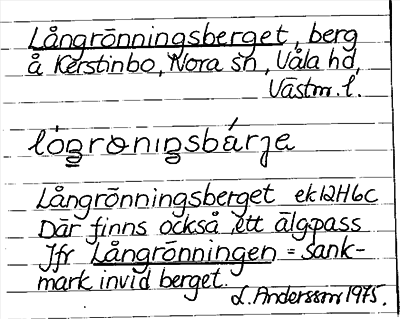 Långrönningsberget, berg
å Kerstinbo, Nora sn, Våla hd,
Västm. l.
Långrönningsberget ek 12H6c
Där finns också ett älgpass
Jfr Långrönningen = sank-
mark invid berget.
L. Andersson 1975.